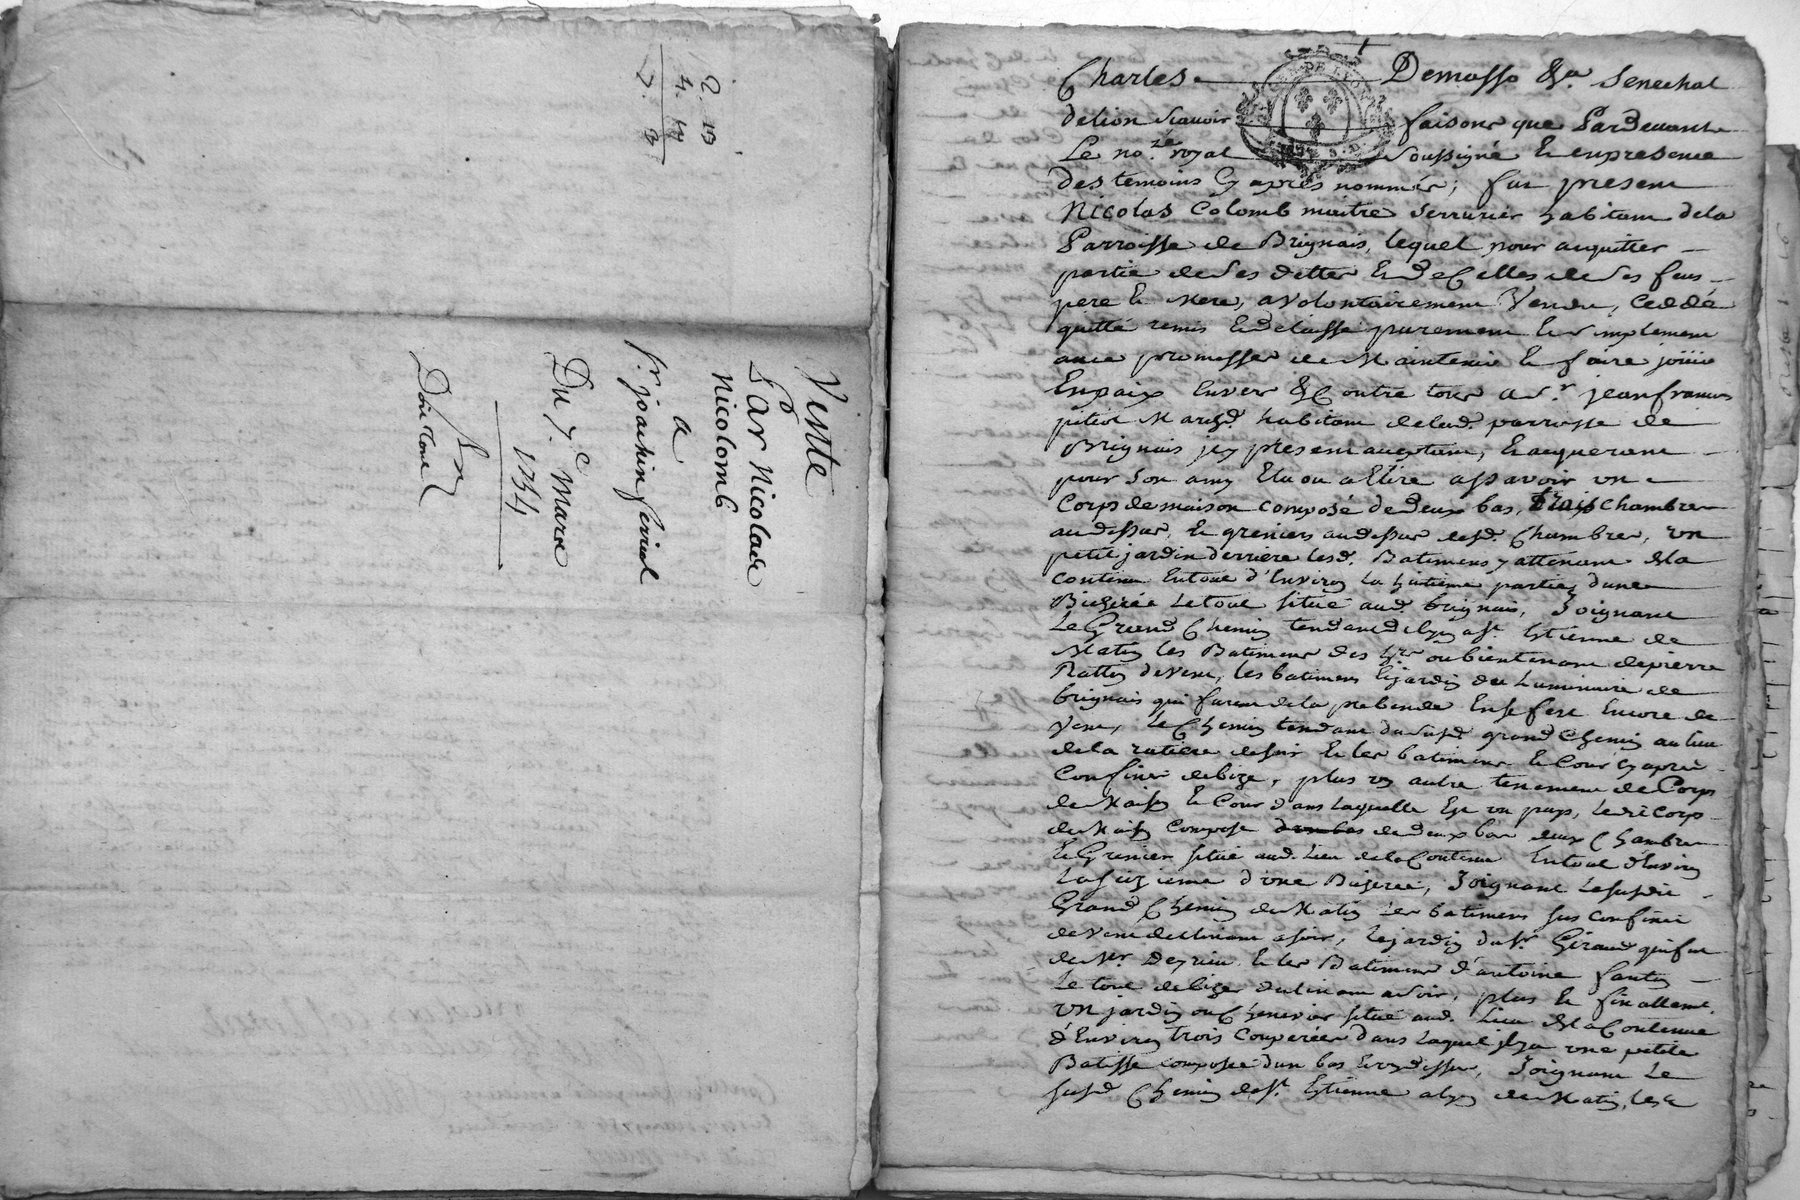 2. 13
4. 
7. 3
Vente
Par Nicolas
Nicolomb
a
Sr. joachin feriol
Du 7e. Mars
1734
Charles Demasso &a. Senechal
delion Scavoir faisons que Pardevant
Le no.re royal soussigné Et en presence
des temoins Cy aprés nommés, fut present
Nicolas Colomb maitre serrurier habitant dela
Parroisse de Brignais, lequel pour acquitter
partie de ses dettes Et de Celles de ses feus
pere Et Mere, a volontairement Vendu, Ceddé
quitté remis Et delaissé purement Et simplement
avec promesses de Maintenir Et faire joüir
En paix Envers & Contre tous a Sr. jean francois
pitiot March.d habitant de lad. parroisse de
Brignais icy present acceptant, Et acquerant
pour son amy Elu ou a Elire assavoir un
Corps de maison composé de deux bas, trois chambres
au dessus, Et greniers au dessus desd. Chambres, un
petit jardin derriere lesd. Batimens y attenant de la
contenue En tout d'Environ la huitieme partie d'une
Bicherée Le tout situé aud. brignais, Joignant
Le Grand Chemin tendant de lyon a St. Etienne de
Matin les Batimens des hrs. ou bientenant de pierre
Ratton de vent, les batimens Et jardin du Luminaire de
brignais qui furent de la prebende Encore de
Vent, Le Chemin tendant du susd. grand Chemin au lieu
de la ratiere de soir Et les batimens Et Cour Cy aprés
Confinés de bize, plus un autre tenement de Corps
de Maison Et Cour dans laquelle Est un puys, ledit Corps
de Maison Composé de deux bas deux Chambres
Et Grenier situé aud. Lieu de la Contenue En tout d'Environ
La seizieme d'une Bicherée, Joignant Le susdit
Grand Chemin de Matin Les batimens sus confinés
de vent declinant a soir, Le jardin du Sr. Giraud qui fut
de Mr. Deyrieu Et les Batimens d'antoine fantin
Le tout de bize declinant a soir, plus Et finallemt.
un jardin ou Chenevier situé aud. Lieu de la Contenue
d'Environ trois Couperées dans laquel il y a une petite
Batisse composée d'un bas Et un dessus, Joignant Le
susd. Chemin de St. Etienne a lyon de Matin, les